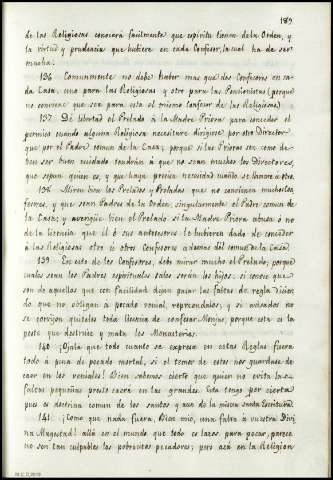 189
de las Religiosas conocerá facilmente que espiritu tienen de la Orden, y
la virtud y prudencia que hubiere en cada Confesor, la cual ha de ser
mucha.
136 Comunmente no debe haber mas que dos Confesores en ca-
da Casa, uno para las Religiosas y otro para las Pensionistas (porque
no conviene que sea para esta el mismo Confesor de las Religiosas)
137 Dé libertad el Prelado á la Madre Priora para conceder el
permiso cuando alguna Religiosa necesitare dirigirse por otro Director
que por el Padre comun de la Casa; porque si las Prioras son como de-
ben ser buen cuidado tendrán á que no sean muchos los Directores,
que sepan quien es, y que haya precisa necesidad cuando se llamare á otro.
138 Miren bien los Prelados y Priodas que no convienen muchos Con-
fesores, y que sean Padres de la Orden, singularmente el Padre comun de
la Casa; y averigüe bien el Prelado si la Madre Priora abusa ó no
de la licencia que él ó sus antecesores le hubieren dado de conceder
á las Religiosas otro ú otros Confesores á demas del comun de la Casa.
139 En esto de los Confesores, debe mirar mucho el Prelado, porque
cuales sean los Padres espirituales tales serán los hijos: si conoce que
son de aquellos que con facilidad dejan pasar las faltas de regla dicien
do que no obligan á pecado venial, reprendalos; y si avisados no
se corrijen quiteles toda licencia de confesar Monjas, porque esta es la
peste que destruie y mata los Monasterios.
140 ¡Ojalá que todo cuanto se espresa en estas Reglas fuera
todo á pena de pecado mortal, si el temor de estos nos guardase de
caer en los veniales! Bien sabemos cierto que quien no evita las
faltas pequeñas presto caerá en las grandes. Esta tengo por cierta
pues es doctrina comun de los santos y aun de la misma sacra Escritura.
141 ¡Como que nada fuera, Dios mió, una falta á vuestra Divi
na Magestad! allá en el mundo que todo es lazos para pecar, parece
no son tan culpables los pobrecitos pecadores; pero acá en la Religion